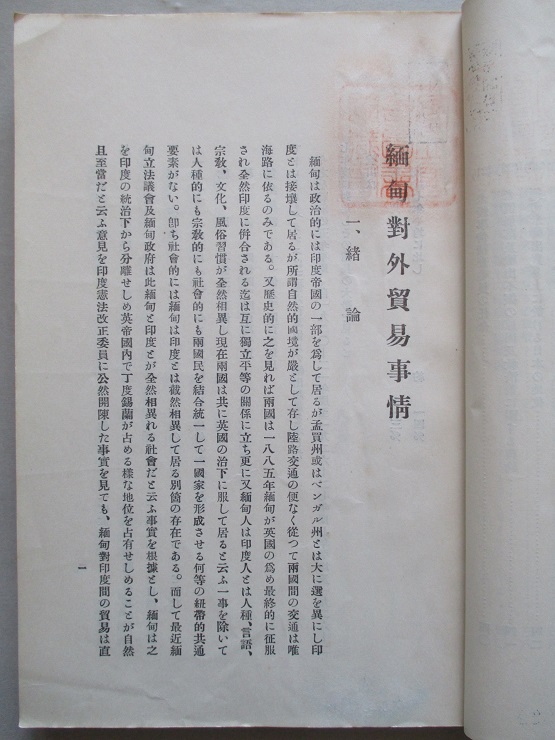 緬甸對外貿易事情
一、緖論
緬甸は政治的には印度帝國の一部を爲して居るが孟買州或はベンガル州とは大に選を異にし印
度とは接壤して居るが所謂自然的國境が嚴として存し陸路交通の便なく從つて兩國間の交通は唯
海路に依るのみである。又歷史的に之を見れば兩國は一八八五年緬甸が英國の爲め最終的に征服
され全然印度に併合される迄は互に獨立平等の關係に立ち更に又緬甸人は印度人とは人種、言語、
宗敎、文化、風俗習慣が全然相異し現在兩國は共に英國の治下に服して居ると云ふ一事を除いて
は人種的にも宗敎的にも社會的にも兩國民を結合統一して一國家を形成させる何等の紐帶的共通
要素がない。卽ち社會的には緬甸は印度とは截然相異して居る別箇の存在である。而して最近緬
甸立法議會及緬甸政府は此緬甸と印度とが全然相異れる社會だと云ふ事實を根據とし、緬甸は之
を印度の統治下から分離せしめ英帝國內で丁度錫蘭が占める樣な地位を占有せしめることが自然
且至當だと云ふ意見を印度憲法改正委員に公然開陳した事實を見ても、緬甸對印度間の貿易は直
一